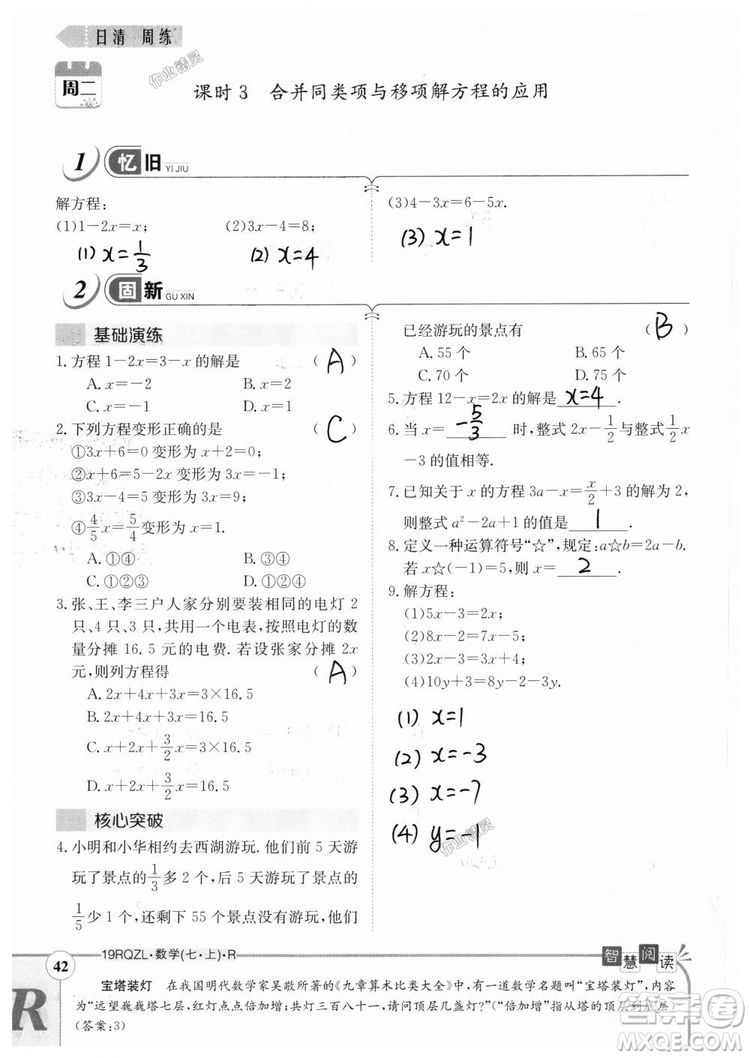 日清 周练
周二
作业精灵
课时3 合并同类项与移项解方程的应用
1 忆旧 YI JIU
解方程:
(1)1-2x=x; (2)3x-4=8;
(1) x=1/3 (2) x=4
(3)4-3x=6-5x.
(3) x=1
2 固新 GU XIN
基础演练
1. 方程1-2x=3-x的解是 ( A )
A. x=-2 B. x=2
C. x=-1 D. x=1
2. 下列方程变形正确的是 ( C )
①3x+6=0变形为x+2=0;
②x+6=5-2x变形为3x=-1;
③x/3=3变形为x=9;
④4/5 x=5/4变形为x=1.
A. ①④ B. ③④
C. ①②③ D. ①②④
3. 张、王、李三户人家分别安装相同的电灯2
只、4只、3只,共用一个电表,按照电灯的数
量分摊16.5元的电费.若设张家分摊2x
元,则列方程得 ( A )
A. 2x+4x+3x=16.5
B. 2x+4x=16.5
C. x+2x+3/2 x=16.5
D. x+2x+3/2=16.5
核心突破
4. 小明和小华相约去西湖游玩.他们前5天游
玩了景点的1/3多2个,后5天游玩了景点的
1/5少1个,还剩下55个景点没有游玩,他们
已经游玩的景点有 ( B )
A. 55个 B. 65个
C. 70个 D. 75个
5. 方程12-x=2x的解是 x=4 .
6. 当x= -5/3 时,整式2x-1/2与整式1/2 x
-3的值相等.
7. 已知关于x的方程3a-x=x/2+3的解为2,
则整式a²-2a+1的值是 1 .
8. 定义一种运算符号“☆”,规定:a☆b=2a-b.
若x☆(-1)=5,则x= 2 .
9. 解方程:
(1)5x-3=2x;
(2)8x-2=7x-5;
(3)2x-3=3x+4;
(4)10y+3=-2-3y.
(1) x=1
(2) x=-3
(3) x=-7
(4) y=-1
作业精灵
42
19RQZL·数学(七·上)·R
智慧阅读
R
宝塔装灯 在我国明代数学家吴敬所著的《九章算术比类大全》中,有一道数学名题叫“宝塔装灯”,内容
为“远望巍巍塔七层,红灯点点倍加增;共灯三百八十一,请问顶层几盏灯?”(“倍加增”指从塔的顶层到底层)
(答案:3)
答案圈
MXQE.COM